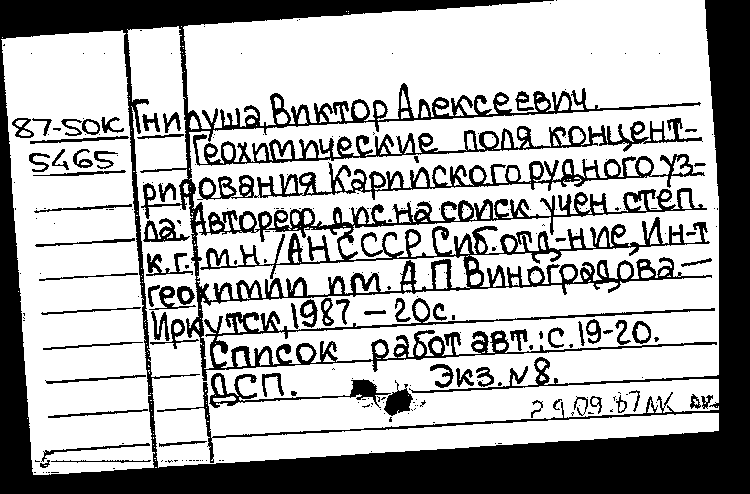 87-50К
5465
Гнилуша, Виктор Алексеевич.
Геохимические поля концент-
рирования Карийского рудного уз-
ла: Автореф. дис. на соиск. учен. степ.
к.г.-м.н. /АН СССР. Сиб. отд-ние, Ин-т
геохимии им. А.П Виноградова. —
Иркутск, 1987. — 20с.
Список работ авт.: с. 19-20.
ДСП. Экз. N 8.
29.09.87
5